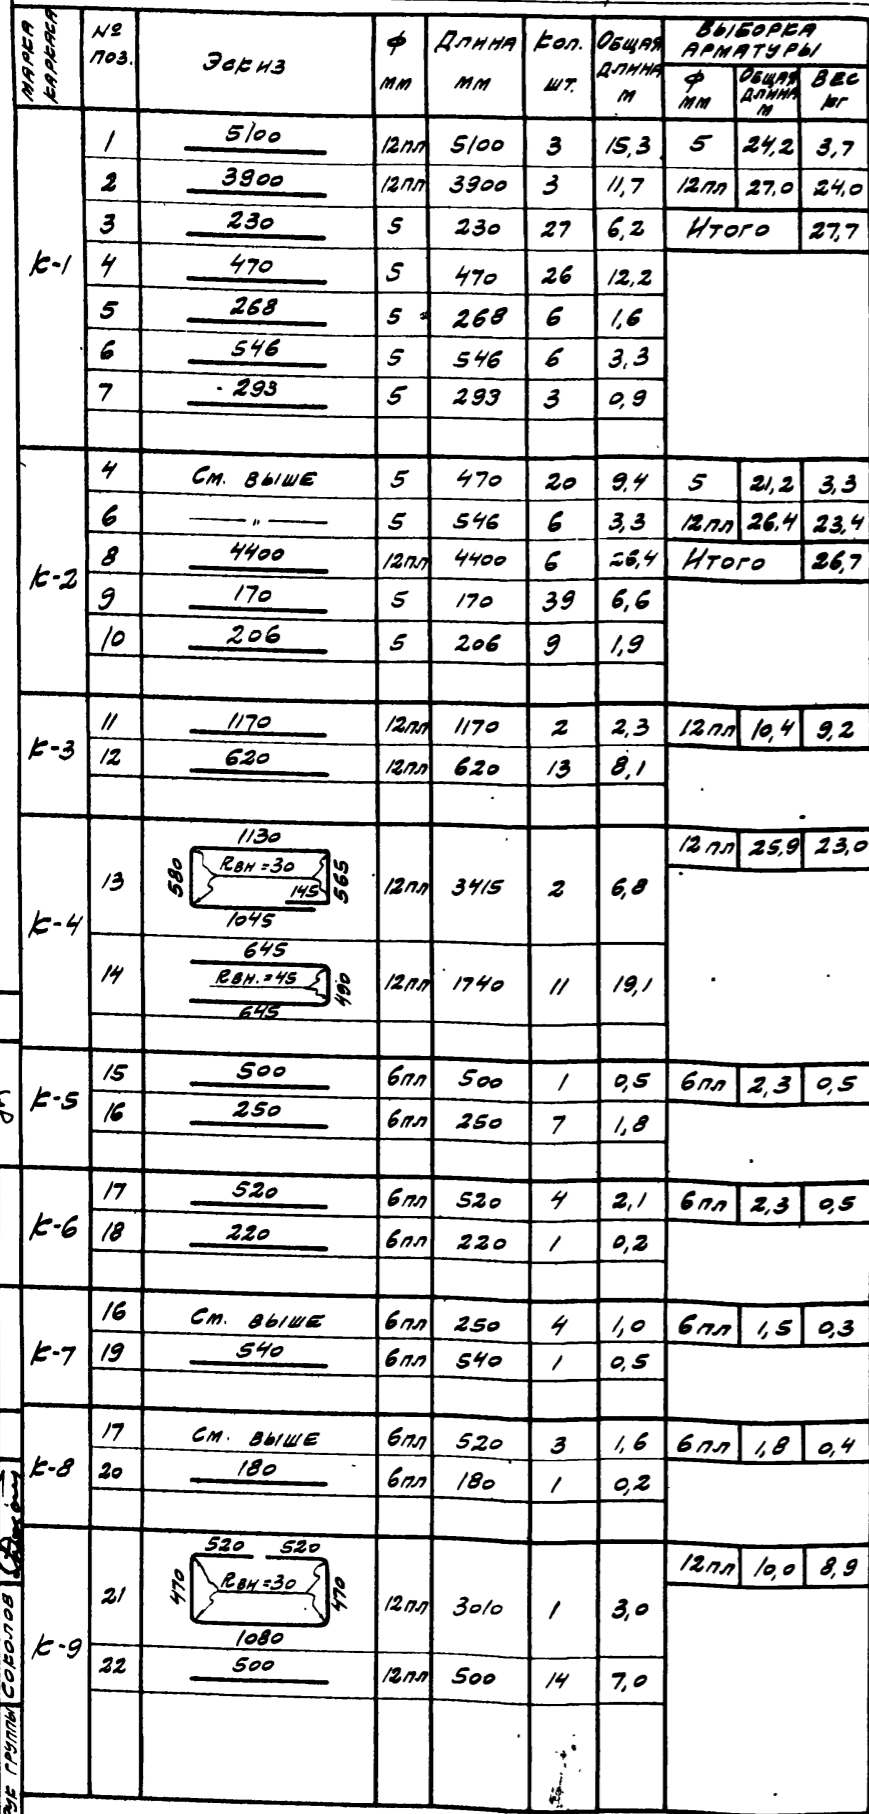 МАРКА КАРКАСА № ПОЗ. Эскиз ф мм Длина мм Кол. шт. Общая длина м ВЫБОРКА АРМАТУРЫ
ф мм Общая длина м Вес кг
К-1
1 5100 12пл 5100 3 15,3 5 24,2 3,7
2 3900 12пл 3900 3 11,7 12пл 27,0 24,0
3 230 5 230 27 6,2 Итого 27,7
4 470 5 470 26 12,2
5 268 5 268 6 1,6
6 546 5 546 6 3,3
7 293 5 293 3 0,9
К-2
4 См. выше 5 470 20 9,4 5 21,2 3,3
6 — " — 5 546 6 3,3 12пл 26,4 23,4
8 4400 12пл 4400 6 26,4 Итого 26,7
9 170 5 170 39 6,6
10 206 5 206 9 1,9
К-3
11 1170 12пл 1170 2 2,3 12пл 10,4 9,2
12 620 12пл 620 13 8,1
К-4
1130 12пл 25,9 23,0
13 580 Rвн=30 145 565 12пл 3415 2 6,8
1045
645
14 Rвн.=45 490 12пл 1740 11 19,1
645
К-5
15 500 6пл 500 1 0,5 6пл 2,3 0,5
16 250 6пл 250 7 1,8
К-6
17 520 6пл 520 4 2,1 6пл 2,3 0,5
18 220 6пл 220 1 0,2
К-7
16 См. выше 6пл 250 4 1,0 6пл 1,5 0,3
19 540 6пл 540 1 0,5
К-8
17 См. выше 6пл 520 3 1,6 6пл 1,8 0,4
20 180 6пл 180 1 0,2
К-9
520 520 12пл 10,0 8,9
21 470 Rвн=30 470 12пл 3010 1 3,0
1080
22 500 12пл 500 14 7,0
Рук группы Соколов